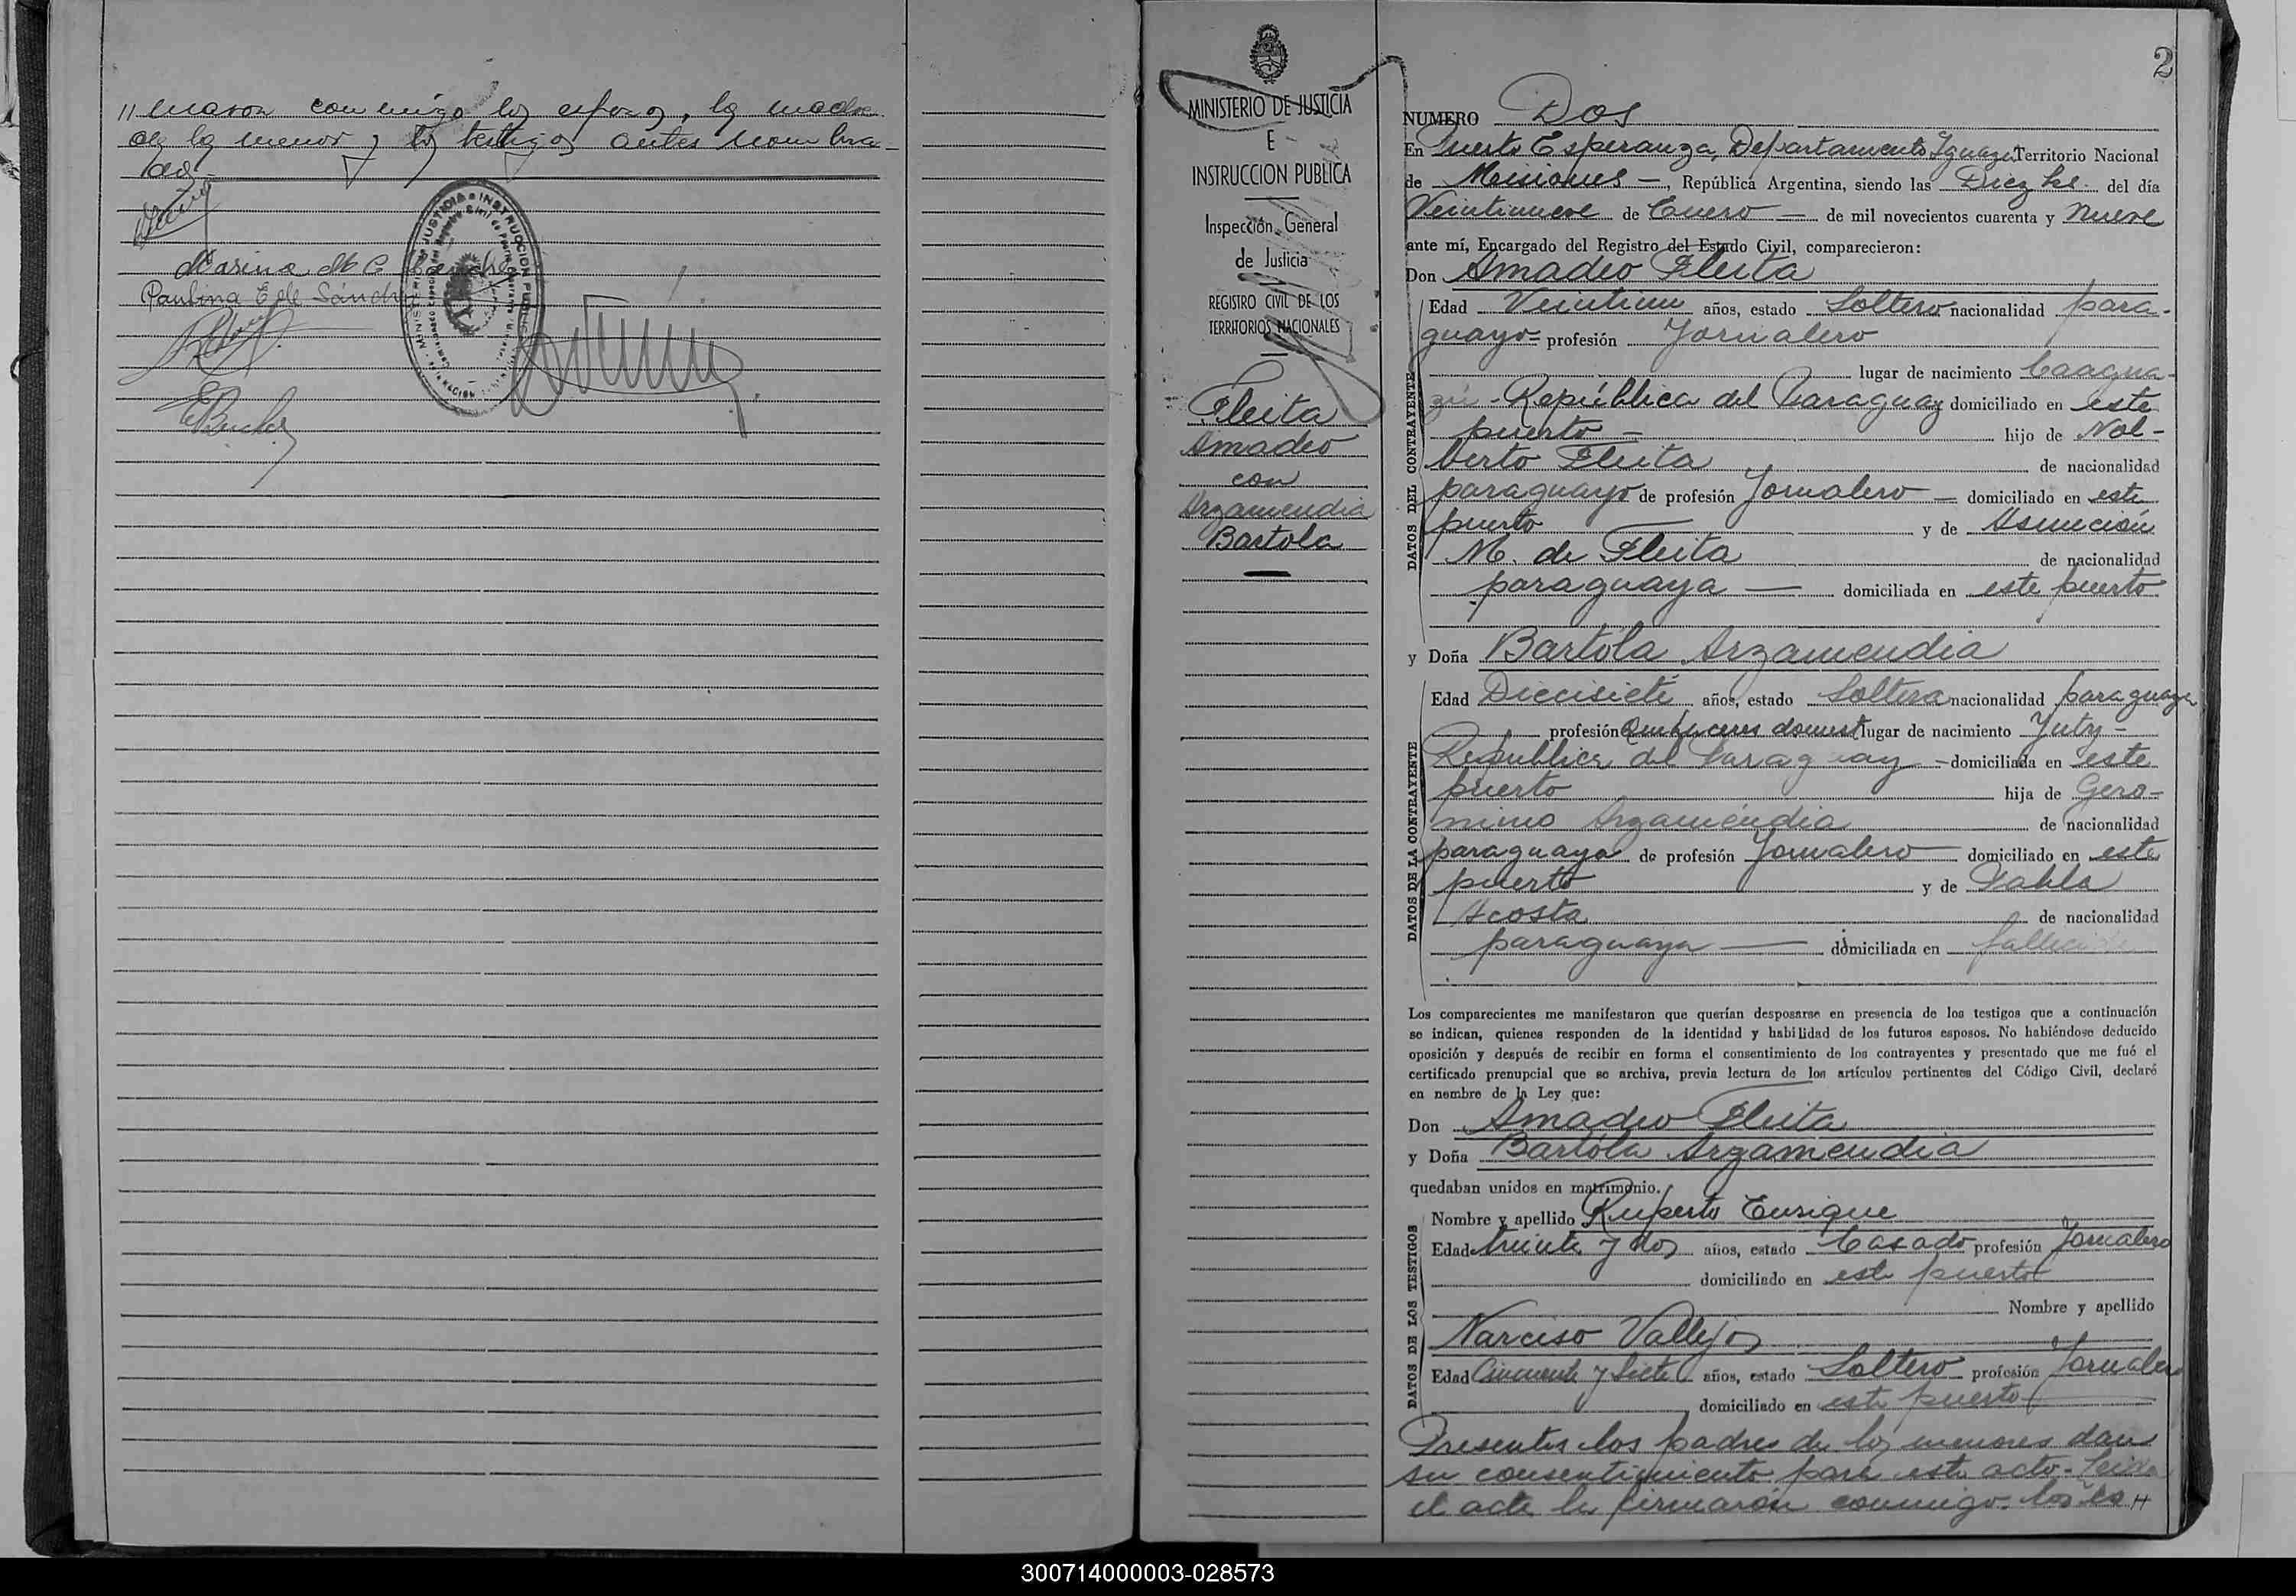 // maron conmigo los esposos, la madre
de la menor y los testigos antes nombra-
dos.-
Marina M. C. Sanchez
Paulina E. de Sánchez
2
MINISTERIO DE JUSTICIA
E
INSTRUCCION PUBLICA
Inspección General
de Justicia
REGISTRO CIVIL DE LOS
TERRITORIOS NACIONALES
Fleita
Amadeo
con
Arzamendia
Bartola
NUMERO Dos
En Puerto Esperanza, Departamento Iguazú Territorio Nacional
de Misiones -, República Argentina, siendo las Diez hs. del día
Veintinueve de Enero - de mil novecientos cuarenta y nueve
ante mí, Encargado del Registro del Estado Civil, comparecieron:
Don Amadeo Fleita
DATOS DEL CONTRAYENTE
Edad Veintiun años, estado Soltero nacionalidad para-
guayo- profesión Jornalero
lugar de nacimiento Caagua-
zú - República del Paraguay domiciliado en este
puerto - hijo de Nol-
berto Fleita de nacionalidad
paraguayo de profesión Jornalero - domiciliado en este
puerto y de Asunción
M. de Fleita de nacionalidad
paraguaya - domiciliada en este puerto
y Doña Bartola Arzamendia
DATOS DE LA CONTRAYENTE
Edad Diecisiete años, estado Soltera nacionalidad paraguaya
profesión Quehaceres domest lugar de nacimiento Yuty -
República del Paraguay - domiciliada en este
puerto hija de Gero-
nimo Arzamendia de nacionalidad
paraguayo de profesión Jornalero domiciliado en este
puerto y de Pabla
Acosta de nacionalidad
paraguaya - domiciliada en fallecida
Los comparecientes me manifestaron que querían desposarse en presencia de los testigos que a continuación
se indican, quienes responden de la identidad y habilidad de los futuros esposos. No habiéndose deducido
oposición y después de recibir en forma el consentimiento de los contrayentes y presentado que me fué el
certificado prenupcial que se archiva, previa lectura de los artículos pertinentes del Código Civil, declaré
en nombre de la Ley que:
Don Amadeo Fleita
y Doña Bartola Arzamendia
quedaban unidos en matrimonio.
DATOS DE LOS TESTIGOS
Nombre y apellido Ruperto Enrique
Edad treinta y dos años, estado Casado profesión Jornalero
domiciliado en este puerto
Nombre y apellido
Narciso Vallejos
Edad Cincuenta y Siete años, estado Soltero profesión Jornalero
domiciliado en este puerto
Presentes los padres de los menores dan
su consentimiento para este acto - Leida
el acta la firmarón conmigo los es //
300714000003-028573